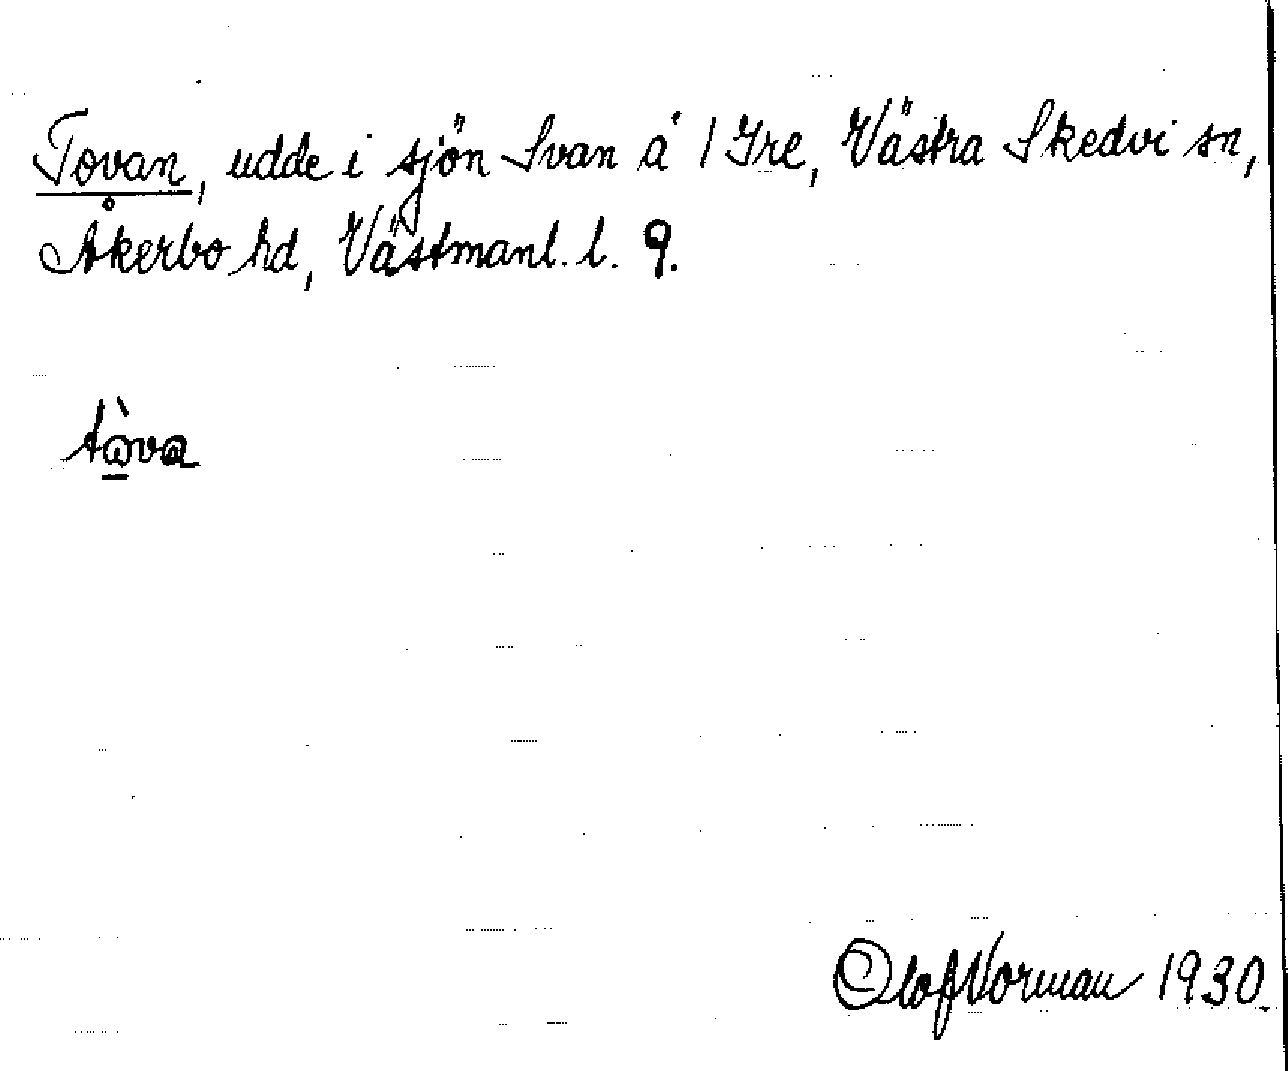 Tovan, udde i sjön Svan å 1 Yre, Västra Skedvi sn,
Åkerbo hd, Västmanl. l. 9.
tòva
Olof Norman 1930.